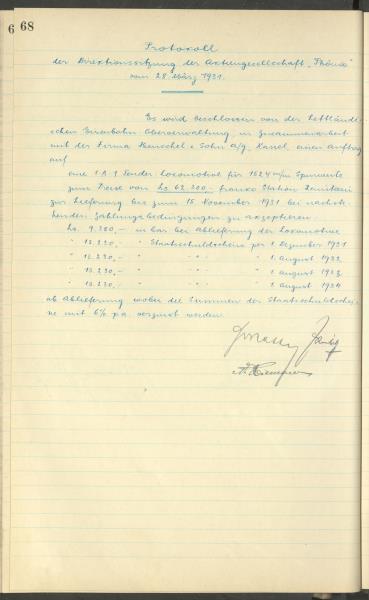 6 68
Protokoll
der Direktionssitzung der Aktiengesellschaft „Phönix"
vom 28. März 1931.
Es wird beschlossen von der Lettländi-
schen Eisenbahn Oberverwaltung, in Zusammenarbeit
mit der Firma Henschel & Sohn A/G, Kassel einen Auftrag
auf
eine 1 A 1 Tender Lokomotive für 1524 m/m Spurweite
zum Preise von Ls 62.200,- franko Station Zemitani
zur Lieferung bis zum 15 November 1931 bei nachste-
henden Zahlungsbedingungen zu akzeptieren:
Ls. 9.300,- in bar bei Ablieferung der Lokomotive
" " Staatsschuldscheine per 1. Dezember 1931
" " " " 1. August 1932
" " " " 1. August 1933
" " " " 1. August 1934
ab Ablieferung wobei die Summen der Staatsschuldschei-
ne mit 6% p.a. verzinst werden.